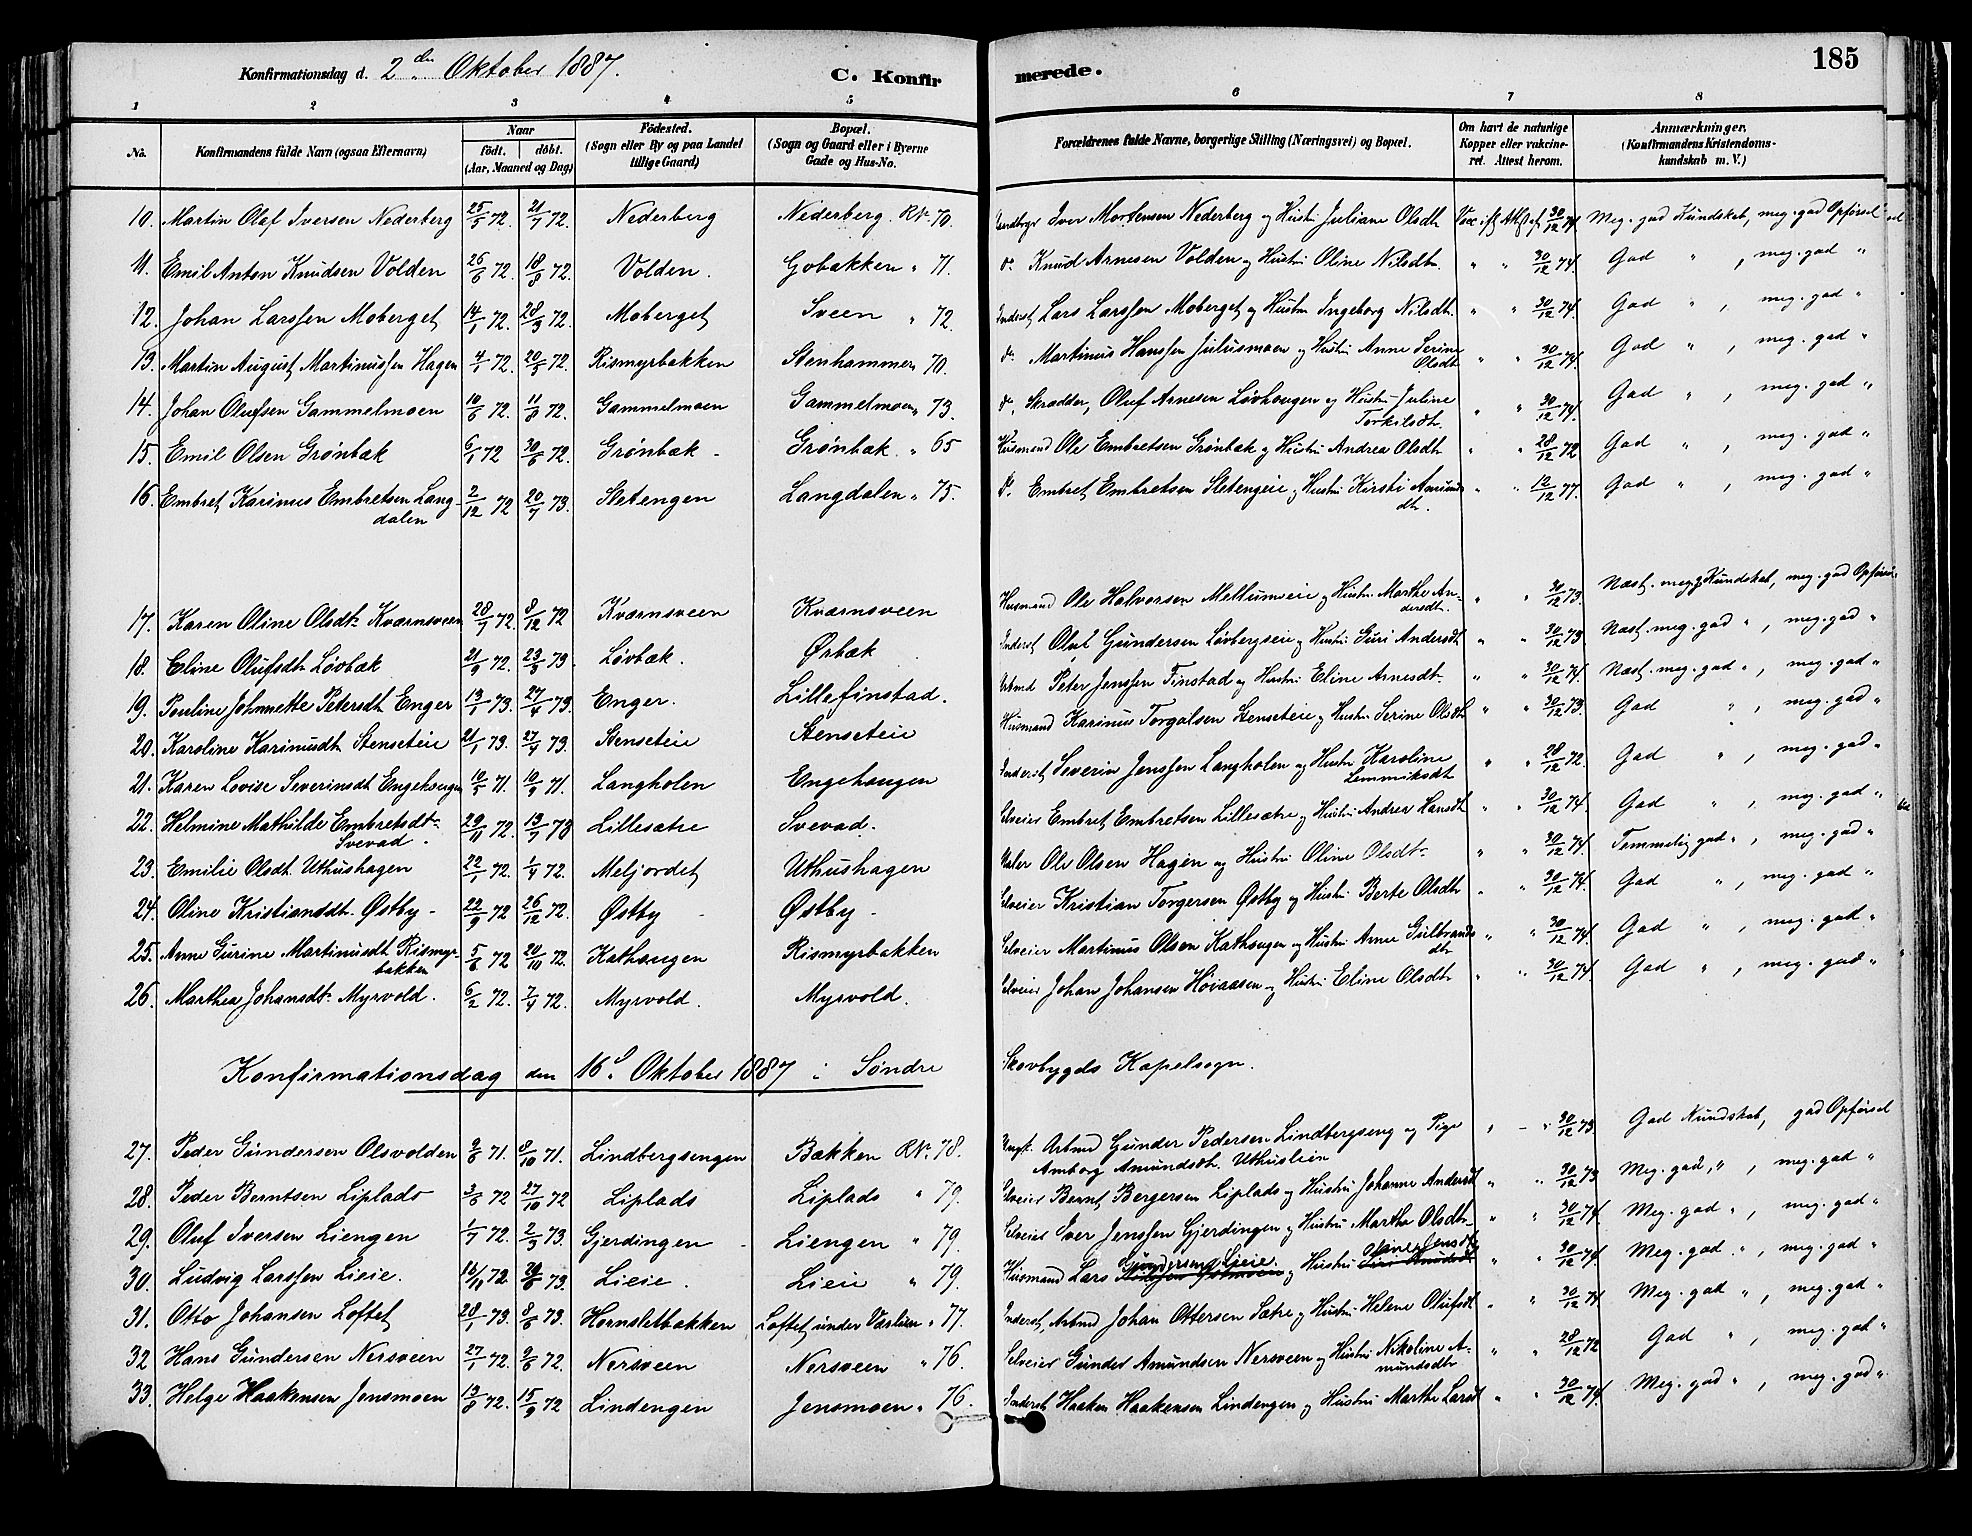 Konfirmationsdag d. 2den Oktober 1887. C. Konfirmerede. 185
1 2 3 4 5 6 7 8
No. Konfirmandens fulde Navn (ogsaa Efternavn) Naar født. døbt. (Aar, Maaned og Dag) Fødested. (Sogn eller By og paa Landet tillige Gaard) Bopæl. (Sogn og Gaard eller i Byerne Gade og Hus-No. Forældrenes fulde Navne, borgerlige Stilling (Næringsvei) og Bopæl. Om havt de naturlige Kopper eller vakcineret. Attest herom. Anmærkninger. (Konfirmandens Kristendomskundskab m. V.)
10. Martin Olaf Iversen Nederberg 25/5 72. 21/7 72. Nederberg Nederberg. RN. 70. Iver Mortensen Nederberg og Hustr Juliane Olsdtr 30/12 74 Meg. god Kundskab, meg. god Opførsel
11. Emil Anton Knudsen Volden 26/6 72. 18/8 72. Volden. Gobakken " 71. do. Knud Arnesen Volden og Hustru Oline Nilsdtr. " " 30/12 74. God " , meg. god "
12. Johan Larssen Moberget 14/1 72. 28/3 72. Moberget Sveen " 72. Inderst Lars Larssen Moberget og Hustru Ingeborg Nilsdtr. " " 30/12 74. God " , meg. god "
13. Martin August Martinussen Hagen 4/1 72. 20/5 72. Rismyrbakken Stenhammer 70. do. Martinus Hanssen Julusmoen og Hustru Anne Serine Olsdtr " " 30/12 74. God " , meg. god "
14. Johan Olufsen Gammelmoen 10/6 72. 11/8 72. Gammelmoen Gammelmoen 73. do. Skrædder, Oluf Arnesen Løvhaugen og Hustru Juline Torkilsdtr. " " 30/12 74. God " , meg. god "
15. Emil Olsen Grønbæk 6/1 72 30/6 72. Grønbæk - Grønbæk. " 65 Husmand Ole Embretsen Grønbæk og Hustru Andrea Olsdtr " " 28/12 72 God " , meg. god "
16. Embret Karinus Embretsen Langdalen 2/12 72 20/7 73. Sletengen Langdalen " 75. do. Embret Embretsen Sletengeie og Hustru Kirsti Amundsdtr. " " 12/12 77. God " , meg. god "
17. Karen Oline Olsdtr Kværnsveen 28/7 72. 8/12 72 Kværnsveen Kværnsveen Husmand Ole Halvorsen Mellumeie og Hustru Marthe Andersdtr. " " 30/12 73. Næst. meg. g. Kundskab, meg. god Opførs.
18. Eline Olufsdtr Løvbæk 21/9 72. 23/3 73. Løvbæk. Ørbæk Inderst Oluf Gundersen Løvbergseie og Hustru Guri Andersdtr " " 30/12 73 Næst. meg. god " , meg. god "
19. Pouline Johnnette Petersdtr Enger 13/1 73. 27/4 73. Enger. Lillefinstad. Arbmd Peter Jenssen Finstad og Hustru Eline Arnesdtr. " " 30/12 74. Næst. meg. god " , meg. god "
20. Karoline Karinusdtr Stenseteie 21/1 73. 27/4 73. Stenseteie Stenseteie Husmand Karinus Torgalsen Stenseteie og Hustru Serine Olsdtr " " 30/12 73. God " , meg. god "
21. Karen Lovise Severinsdtr Engehaugen 10/5 71. 10/9 71. Langholen Engehaugen Inderst Severin Jenssen Langholen og Hustru Karoline Lemmiksdtr " " 28/12 72. God " , meg. god "
22. Helmine Mathilde Embretsdtr Svevad. 29/11 72. 13/7 78 Lillesætre Svevad. Selveier Embret Embretsen Lillesætre og Hustru Andrea Hansdtr " " 30/12 74. God " , meg. god "
23. Emilie Olsdtr. Uthushagen 22/1 72. 1/4 72. Meljordet Uthushagen Ole Olsen Hagen og Hustru Oline Olsdtr " " 30/12 74. Temmelig god " , meg. god "
24. Oline Kristiansdtr. Østby - 22/9 72 26/12 72. Østby - Østby - Selveier Kristian Torgersen Østby og Hustru Berte Olsdtr " " 30/12 74. God " , meg. god "
25. Anne Gurine Martinusdtr Rismyrbakken 5/6 72 20/10 72. Kathaugen Rismyrbakken Selveier Martinus Olsen Kathaugen og Hustru Anne Gulbrandsdtr " " 30/12 74. God " , meg. god "
26. Marthea Johansdtr. Myrvold. 6/2 72. 7/4 72. Myrvold. Myrvold. Selveier Johan Johansen Høiaasen og Hustru Eline Olsdtr " " 30/12 74 God " , meg. god "
Konfirmationsdag den 16d. Oktober 1887 i Søndre Skovbygds Kapelsogn.
27. Peder Gundersen Olsvolden 9/6 71. 8/10 71. Lindbergsengen Bakken RN. 78. Ungk. Arbmd Gunder Pedersen Lindbergseng og Pige Amborg Amundsdtr. Uthusleien " " 30/12 73 God Kundskab, god Opførsel
28. Peder Berntsen Liplads 3/6 72 27/10 72 Liplads Liplads " 79. Selveier Bernt Bergersen Liplads og Hustru Johanne Andersdtr " " 30/12 73 Meg. god, " , meg. god "
29. Oluf Iversen Liengen 1/7 72. 2/3 73. Gjerdingen - Liengen " 79. Selveier Iver Jenssen Gjerdingen og Hustru Marthe Olsdtr " " 30/12 74. Meg. god " , meg. god "
30. Ludvig Larssen Lieie. 16/11 72. 29/6 73. Lieie. Lieie " 79. Husmand Lars Gundersen Lieie. og Hustru Oline Jensdtr " " 30/12 74 Meg. god. " , meg. god "
31. Otto Johansen Loftet 28/1 73. 8/6 73. Hornsletbakken Loftet under Værlien " 77. Inderst, Arbmd Johan Ottersen Sætre og Hustru Helene Olufsdtr " " 30/12 74 Meg. god " , meg. god "
32 Hans Gundersen Nersveen 27/1 72. 9/6 72. Nersveen Nersveen " 76. Selveier Gunder Amundsen Nersveen og Hustru Nikoline Amundsdtr " " 28/12 72 God " , meg. god "
33. Helge Haakensen Jensmoen 13/8 72. 15/9 72 Lindengen Jensmoen " 76. Inderst Haaken Haakensen Lindengen og Hustru Marthe Larsdtr " " 30/12 74. Meg. god " , meg. god "